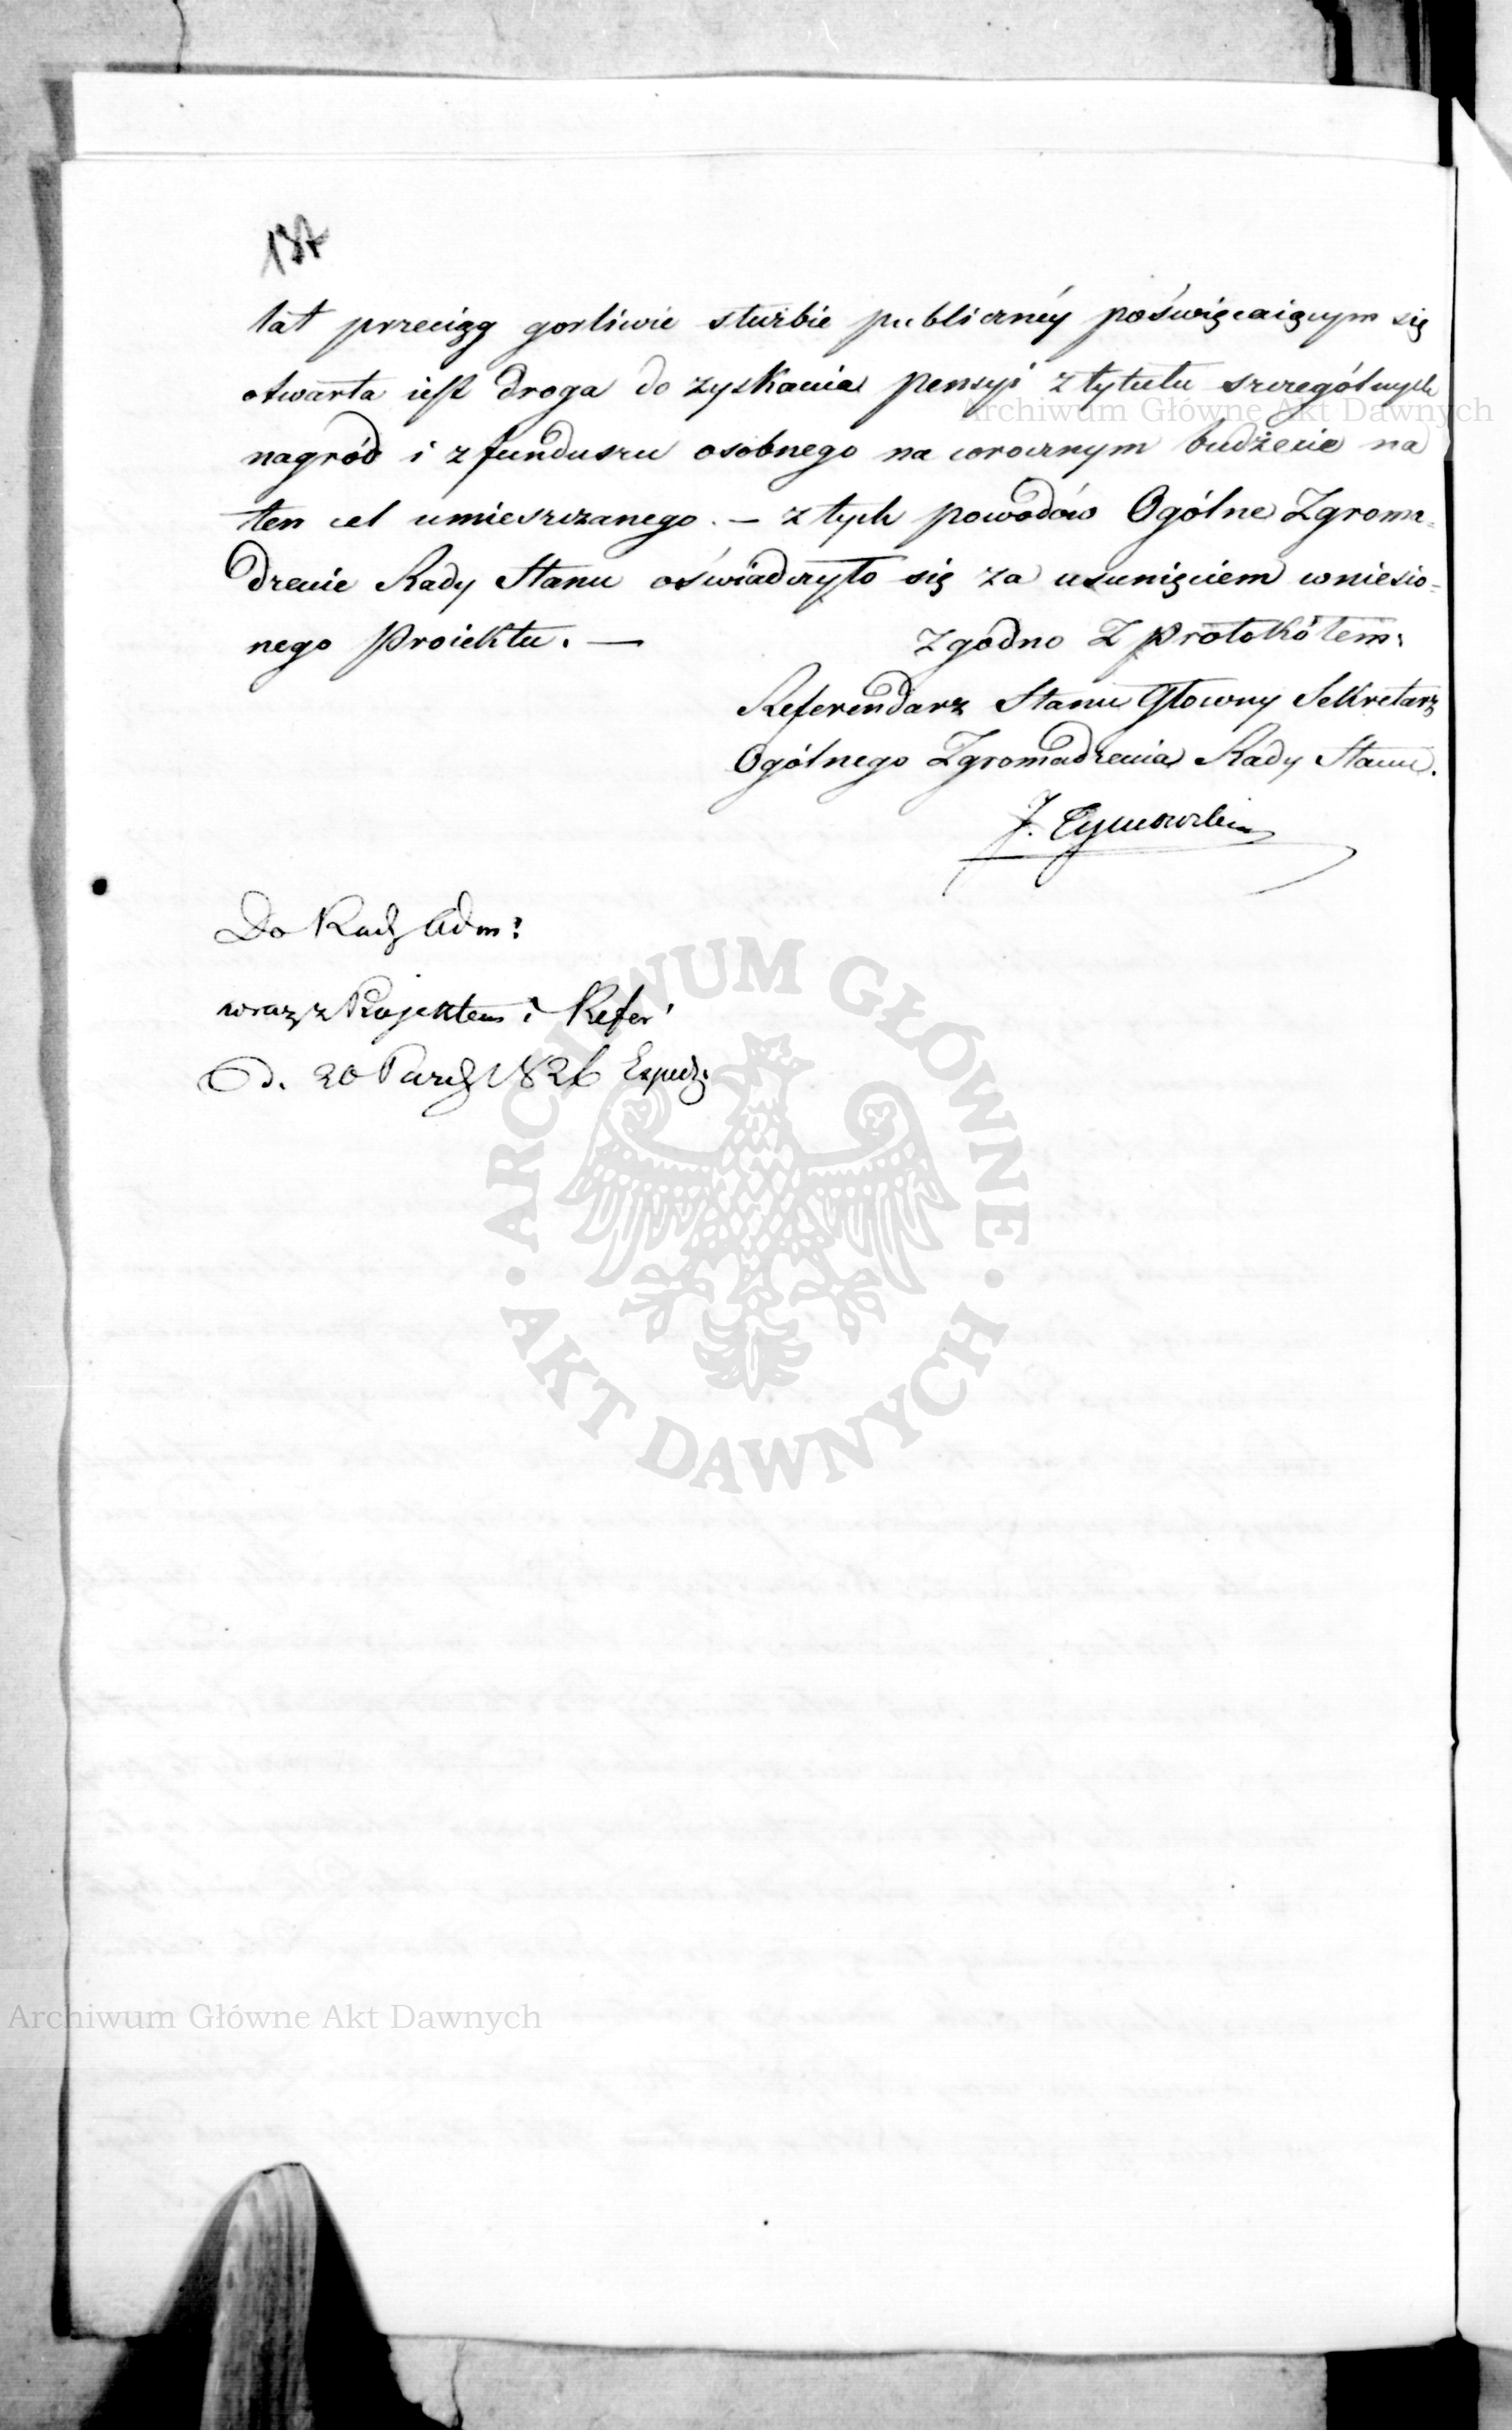 137
lat przeciąg gorliwie służbie publicznéy poświęcaiącym się
otwarta iest droga do zyskania pensyi z tytułu szczególnych
nagród i z funduszu osobnego na corocznym budżecie na
ten cel umieszczanego. — z tych powodów Ogólne Zgroma=
dzenie Rady Stanu oświadczyło się za usunięciem wniesio=
nego Proiektu. —
Zgodno z Protokółem:
Referendarz Stanu Głowny Sekretarz
Ogólnego Zgromadzenia Rady Stanu.
J. Tymowski
Do Rady Adm:
wraz z Projektem i Refer
d. 20 Paźdz 1826 Exped:
Archiwum Główne Akt Dawnych
ARCHIWUM GŁÓWNE
AKT DAWNYCH
Archiwum Główne Akt Dawnych